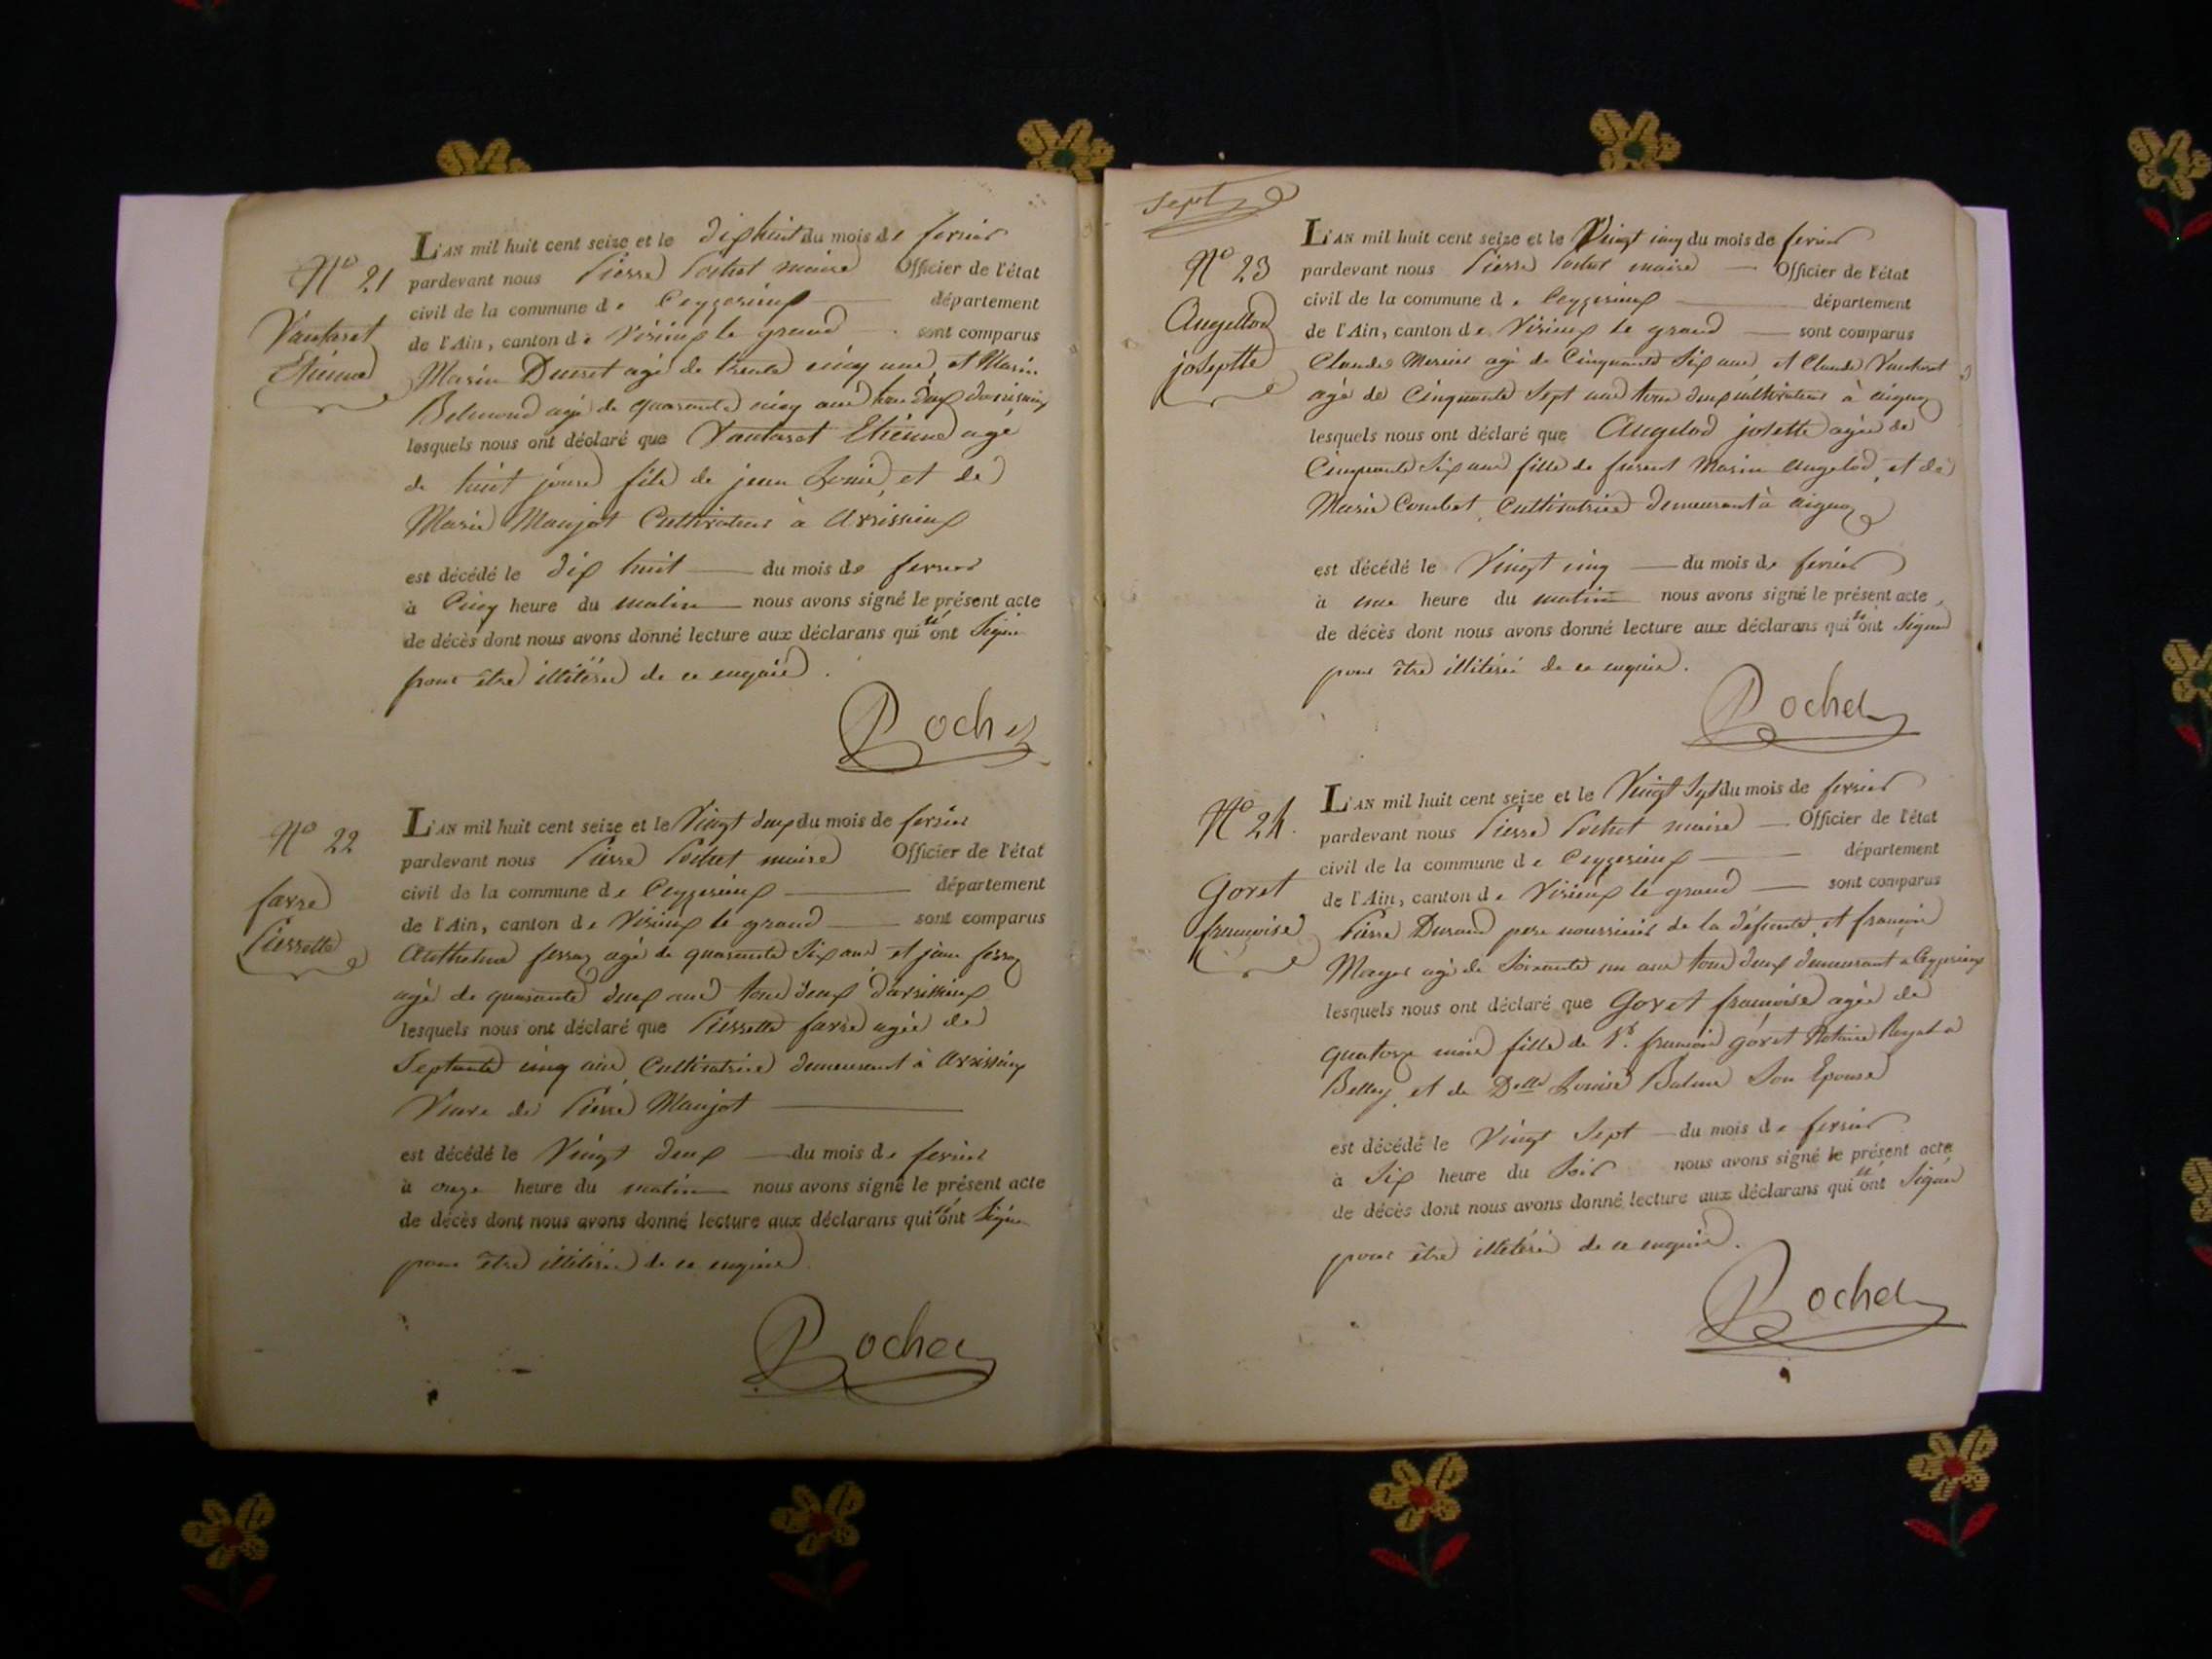 N° 21
Vautaret
Etienne
L'AN mil huit cent seize et le dixhuit du mois de fevrier
pardevant nous Pierre Pochet maire Officier de l'état
civil de la commune de Ceyzerieux département
de l'Ain, canton de Virieux le grand sont comparus
Marin Ducret agé de trente cinq ans, et Marin
Belmond agé de quarante cinq ans tous deux d'arvissieux
lesquels nous ont déclaré que Vautaret Etienne agé
de huit jours fils de jean Louis, et de
Marie Maujot Cultivateur à Arvissieux
est décédé le dix huit du mois de fevrier
à Cinq heure du matin nous avons signé le présent acte
de décès dont nous avons donné lecture aux déclarans qui n'ont Signé
pour être illitérés de ce enquis.
Pochet
N° 22
favre
Pierrette
L'AN mil huit cent seize et le Vingt deux du mois de fevrier
pardevant nous Pierre Pochet maire Officier de l'état
civil de la commune de Ceyzerieux département
de l'Ain, canton de Virieux le grand sont comparus
Anthelme ferraz agé de quarante Six ans et jean ferraz
agé de quarante deux ans tous deux d'arvissieux
lesquels nous ont déclaré que Pierrette favre agée de
Septante cinq ans Cultivatrice demeurant à Arvissieux
Veuve de Pierre Maujot
est décédé le Vingt deux du mois de fevrier
à onze heure du matin nous avons signé le présent acte
de décès dont nous avons donné lecture aux déclarans qui n'ont Signé
pour être illitérés de ce enquis
Pochet
Sept
N° 23
Augellod
joseptte
L'AN mil huit cent seize et le Vingt cinq du mois de fevrier
pardevant nous Pierre Pochet maire Officier de l'état
civil de la commune de Ceyzerieux département
de l'Ain, canton de Virieux le grand sont comparus
Claude Mercier agé de Cinquante Six ans, et Claude Vautaret
agé de Cinquante Sept ans tous deux cultivateurs à aignoz
lesquels nous ont déclaré que Augelod josette agée de
Cinquante Six ans fille de furent Marin Augelod, et de
Marie Combet, Cultivatrice demeurant à aignoz
est décédé le Vingt cinq du mois de fevrier
à une heure du matin nous avons signé le présent acte
de décès dont nous avons donné lecture aux déclarans qui n'ont Signé
pour être illitérés de ce enquis.
Pochet
N° 24.
Goret
françoise
L'AN mil huit cent seize et le Vingt Sept du mois de fevrier
pardevant nous Pierre Pochet maire Officier de l'état
civil de la commune de Ceyzerieux département
de l'Ain, canton de Virieux le grand sont comparus
Pierre Durand pere nourricier de la défunte, et françois
Mayet agé de Soixante un ans tous deux demeurant a Ceyzerieux
lesquels nous ont déclaré que Goret françoise agée de
quatorze mois fille de Sr. françois goret Notaire Royal a
Belley, et de Delle Louise Balme Son Epouse
est décédé le Vingt Sept du mois de fevrier
à Six heure du Soir nous avons signé le présent acte
de décès dont nous avons donné lecture aux déclarans qui n'ont Signé
pour être illitérés de ce enquis.
Pochet